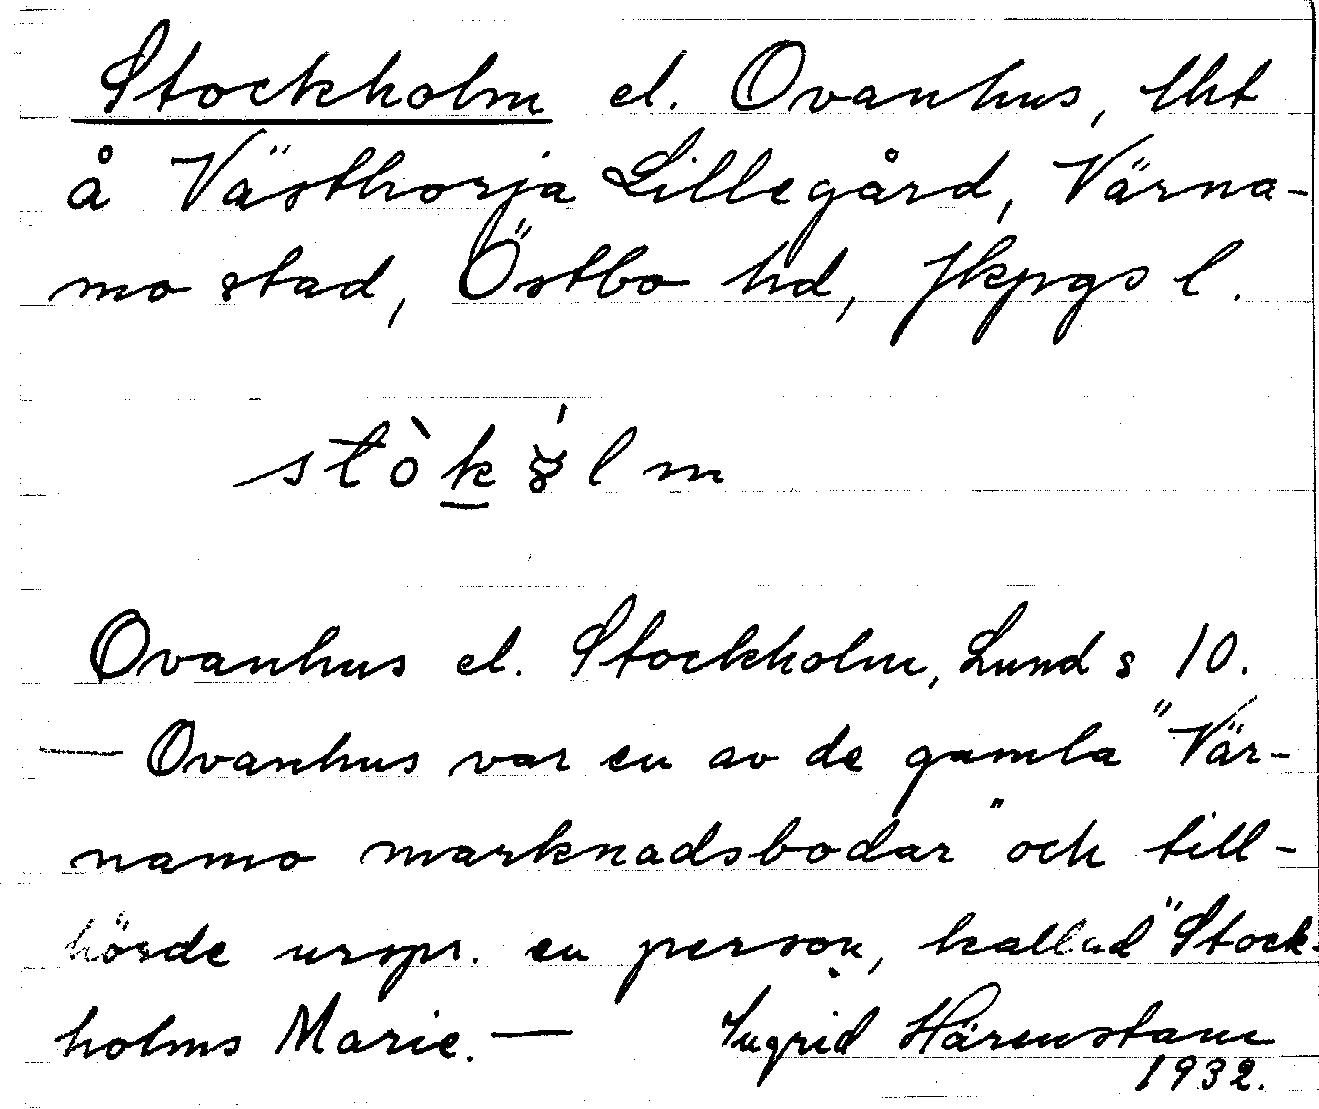 Stockholm el. Ovanhus, lht
å Västhorja Lillegård, Värna-
mo stad, Östbo hd, Jkpgs l.
Ovanhus el. Stockholm, Lund s 10.
— Ovanhus var en av de gamla "Vär-
namo marknadsbodar" och till-
hörde urspr. en person, kallad "Stock-
holms Marie. — Ingrid Härenstam
1932.